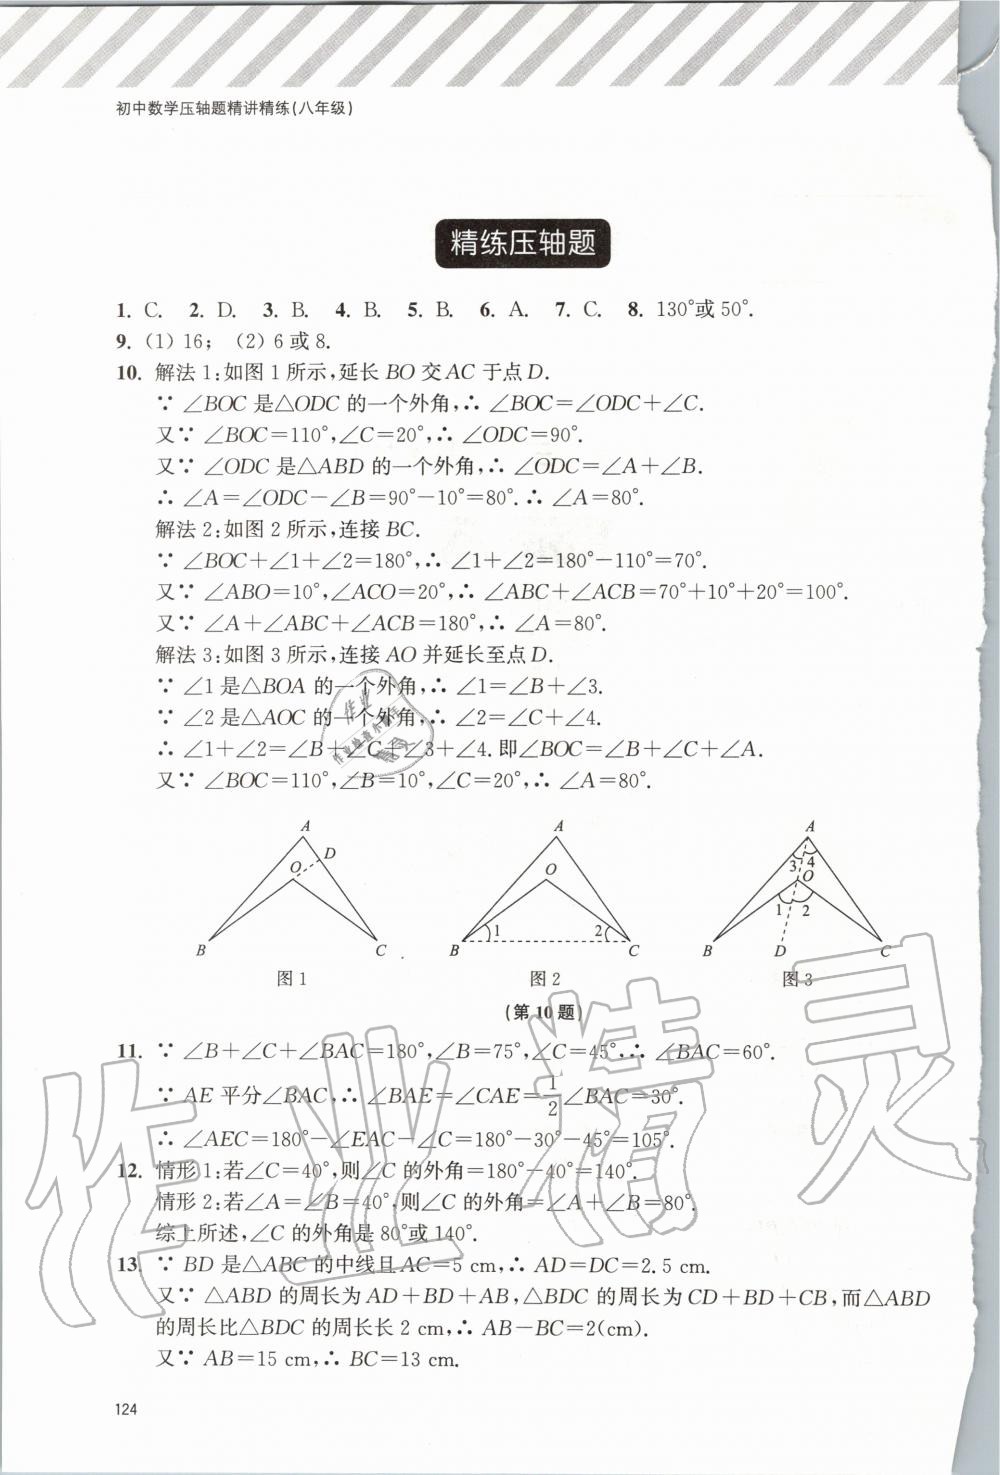 初中数学压轴题精讲精练(八年级)
精练压轴题
1. C. 2. D. 3. B. 4. B. 5. B. 6. A. 7. C. 8. 130°或50°.
9. (1) 16; (2) 6或8.
10. 解法1:如图1所示,延长BO交AC于点D.
∵ ∠BOC是△ODC的一个外角,∴ ∠BOC=∠ODC+∠C.
又∵ ∠BOC=110°,∠C=20°,∴ ∠ODC=90°.
又∵ ∠ODC是△ABD的一个外角,∴ ∠ODC=∠A+∠B.
∴ ∠A=∠ODC-∠B=90°-10°=80°.∴ ∠A=80°.
解法2:如图2所示,连接BC.
∵ ∠BOC+∠1+∠2=180°,∴ ∠1+∠2=180°-110°=70°.
又∵ ∠ABO=10°,∠ACO=20°,∴ ∠ABC+∠ACB=70°+10°+20°=100°.
又∵ ∠A+∠ABC+∠ACB=180°,∴ ∠A=80°.
解法3:如图3所示,连接AO并延长至点D.
∵ ∠1是△BOA的一个外角,∴ ∠1=∠B+∠3.
∵ ∠2是△AOC的一个外角,∴ ∠2=∠C+∠4.
∴ ∠1+∠2=∠B+∠C+∠3+∠4.即∠BOC=∠B+∠C+∠A.
又∵ ∠BOC=110°,∠B=10°,∠C=20°,∴ ∠A=80°.
A
D
O
B
C
图1
A
O
1
2
B
C
图2
A
3
4
O
1
2
B
D
C
图3
(第10题)
11. ∵ ∠B+∠C+∠BAC=180°,∠B=75°,∠C=45°,∴ ∠BAC=60°.
∵ AE平分∠BAC,∴ ∠BAE=∠CAE=1/2∠BAC=30°.
∴ ∠AEC=180°-∠EAC-∠C=180°-30°-45°=105°.
12. 情形1:若∠C=40°,则∠C的外角=180°-40°=140°.
情形2:若∠A=∠B=40°,则∠C的外角=∠A+∠B=80°.
综上所述,∠C的外角是80°或140°.
13. ∵ BD是△ABC的中线且AC=5 cm,∴ AD=DC=2.5 cm.
又∵ △ABD的周长为AD+BD+AB,△BDC的周长为CD+BD+CB,而△ABD
的周长比△BDC的周长长2 cm,∴ AB-BC=2(cm).
又∵ AB=15 cm,∴ BC=13 cm.
124
作业精灵